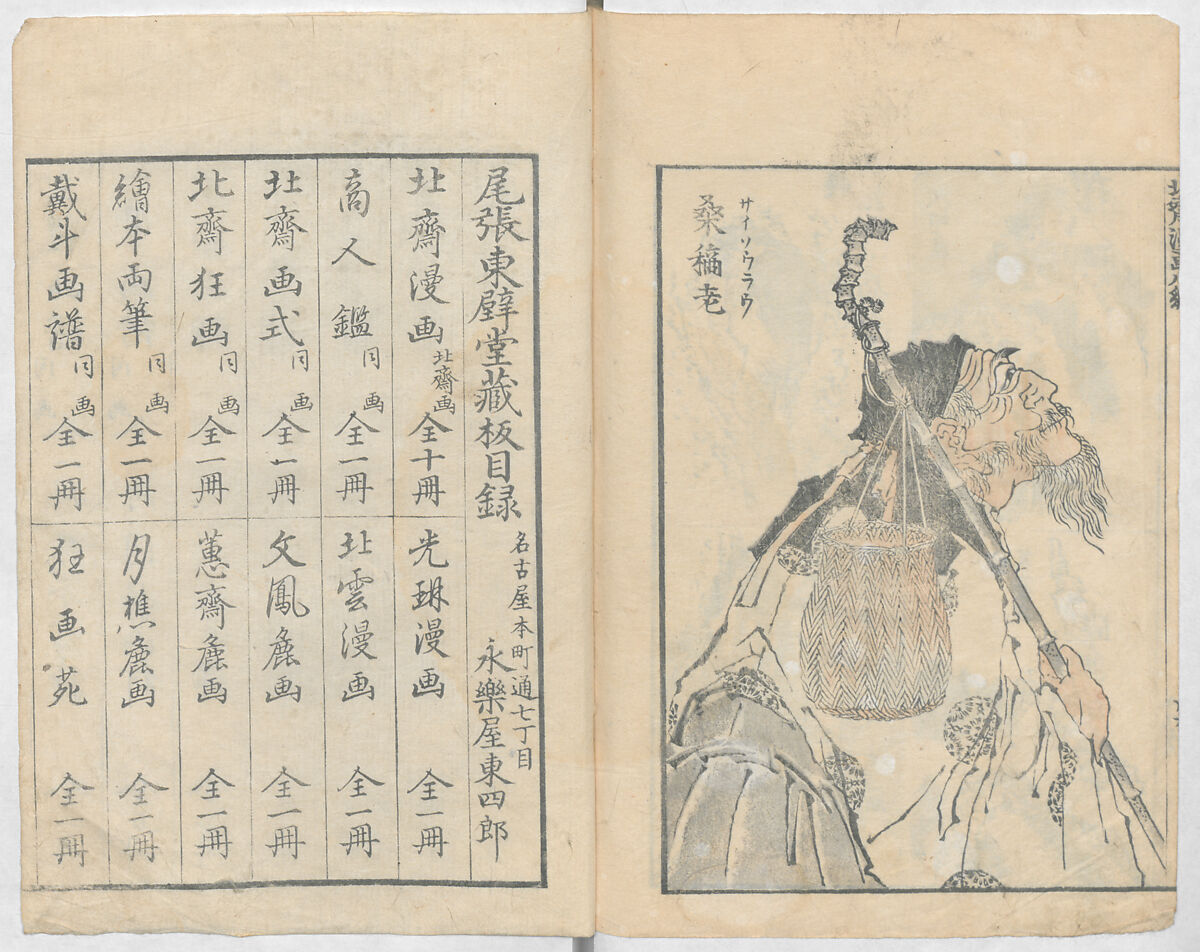 北斎漫画八編
サイソウラウ
桑穐老
尾張東壁堂藏板目録
名古屋本町通七丁目
永樂屋東四郎
北齋漫画 北齋画 全十冊
光琳漫画 全一冊
商人鑑 同画 全一冊
北雲漫画 全一冊
北齋画式 同画 全一冊
文鳳麁画 全一冊
北齋狂画 同画 全一冊
蕙齋麁画 全一冊
繪本両筆 同画 全一冊
月樵麁画 全一冊
戴斗画譜 同画 全一冊
狂画苑 全一冊